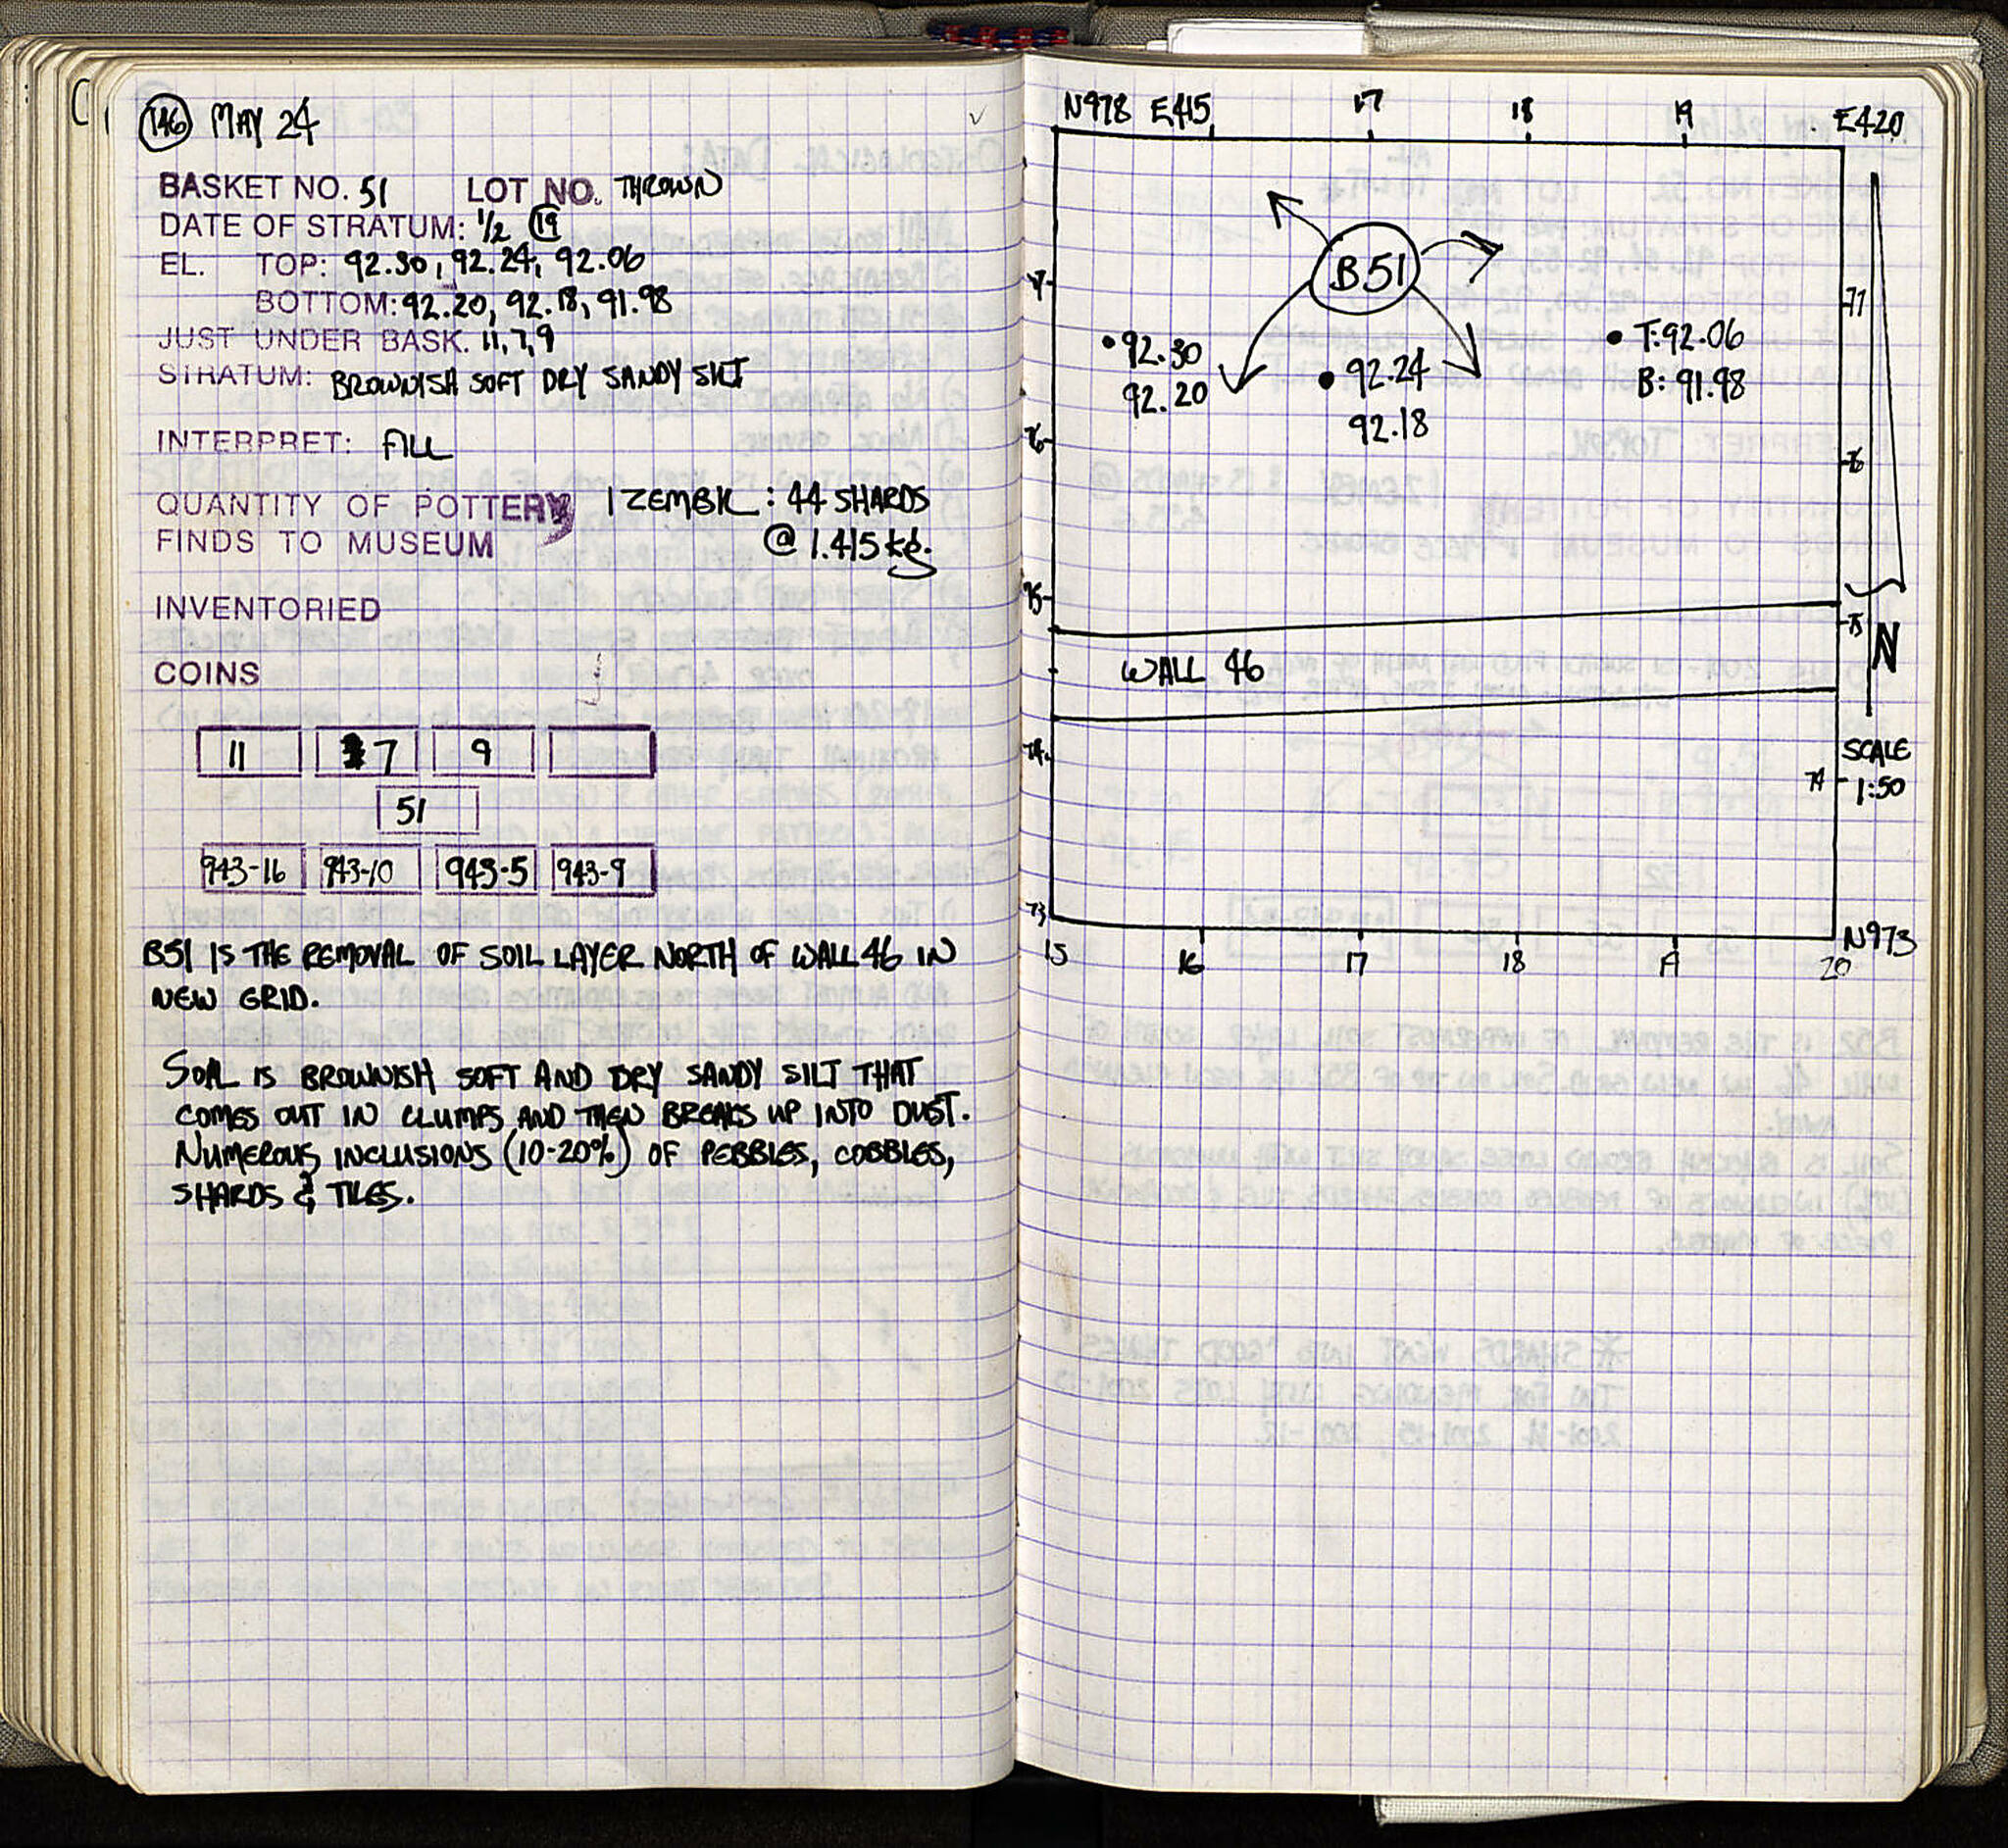 146 MAY 24
BASKET NO. 51 LOT NO. THROWN
DATE OF STRATUM: 1/2 19
EL. TOP: 92.30, 92.24, 92.06
BOTTOM: 92.20, 92.18, 91.98
JUST UNDER BASK. 11, 7, 9
STRATUM: BROWNISH SOFT DRY SANDY SILT
INTERPRET: FILL
QUANTITY OF POTTERY 1 ZEMBIL : 44 SHARDS
FINDS TO MUSEUM @ 1.415 kg.
INVENTORIED
COINS
11 7 9
51
943-16 943-10 943-5 943-9
B51 IS THE REMOVAL OF SOIL LAYER NORTH OF WALL 46 IN
NEW GRID.
SOIL IS BROWNISH SOFT AND DRY SANDY SILT THAT
COMES OUT IN CLUMPS AND THEN BREAKS UP INTO DUST.
NUMEROUS INCLUSIONS (10-20%) OF PEBBLES, COBBLES,
SHARDS & TILES.
N978 E415 17 18 19 E420
B51
77 77
92.30
92.20
92.24
92.18
T: 92.06
B: 91.98
76 76
75 75
N
WALL 46
74 74
SCALE
1:50
73 N973
15 16 17 18 19 20